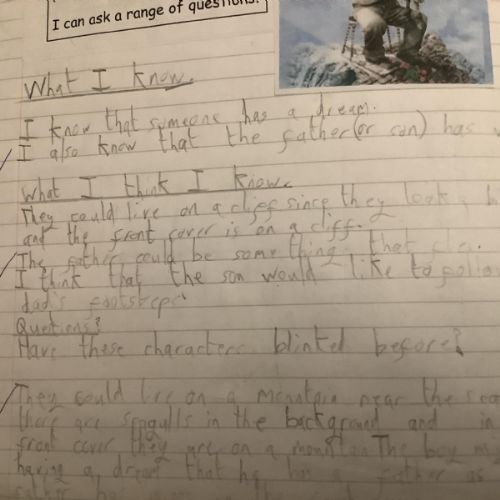 I can ask a range of questions.
What I know.
I know that someone has a dream.
I also know that the father (or son) has
What I think I know.
They could live on a cliff since they look
and the front cover is on a cliff.
The father could be something that
I think that the son would like to
dad's footsteps
Questions?
Have these characters blinked before?
They could live on a mountain near the sea
there are seagulls in the background and in
front cover they are on a mountain The boy
having a dream that he has a father as
father has